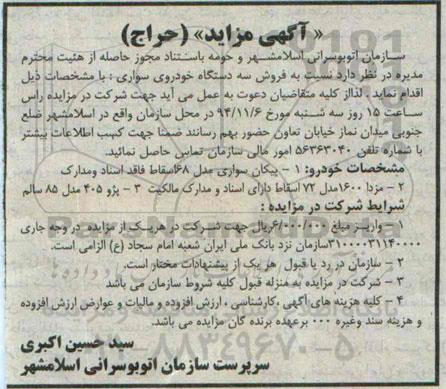 « آگهی مزاید» (حراج)
سازمان اتوبوسرانی اسلامشهر و حومه باستناد مجوز حاصله از هئیت محترم
مدیره در نظر دارد نسبت به فروش سه دستگاه خودروی سواری : با مشخصات ذیل
اقدام نماید . لذا از کلیه متقاضیان دعوت به عمل می آید جهت شرکت در مزایده راس
ساعت ۱۵ روز سه شنبه مورخ ۹۴/۱۱/۶ در محل سازمان واقع در اسلامشهر ضلع
جنوبی میدان نماز خیابان تعاون حضور بهم رسانند ضمنا جهت کسب اطلاعات بیشتر
با شماره تلفن ۵۶۳۶۳۰۴۰ امور مالی سازمان تماس حاصل نمائید.
مشخصات خودرو: ۱ – پیکان سواری مدل ۶۸اسقاط فاقد اسناد ومدارک
۲ – مزدا ۱۶۰۰مدل ۷۲ اسقاط دارای اسناد و مدارک مالکیت ۳ – پژو ۴۰۵ مدل ۸۵ سالم
شرایط شرکت در مزایده :
۱ – واریز مبلغ ۶/۰۰۰/۰۰۰ریال جهت شرکت در هریک از مزایده در وجه جاری
۳۱۰۰۰۰۳۱۱۴۰۰۰۰سازمان نزد بانک ملی ایران شعبه امام سجاد (ع) الزامی است.
۲ – سازمان در رد یا قبول هر یک از پیشنهادات مختار است.
۳ – شرکت در مزایده به منزله قبول کلیه شروط سازمان می باشد
۴ – کلیه هزینه های آگهی ،کارشناسی ، ارزش افزوده و مالیات و عوارض ارزش افزوده
و هزینه سند وغیره ۰۰۰ برعهده برنده گان مزایده می باشد.
سید حسین اکبری
سرپرست سازمان اتوبوسرانی اسلامشهر
۰۲۱-۸۸۳۴۹۶۷۰-۵